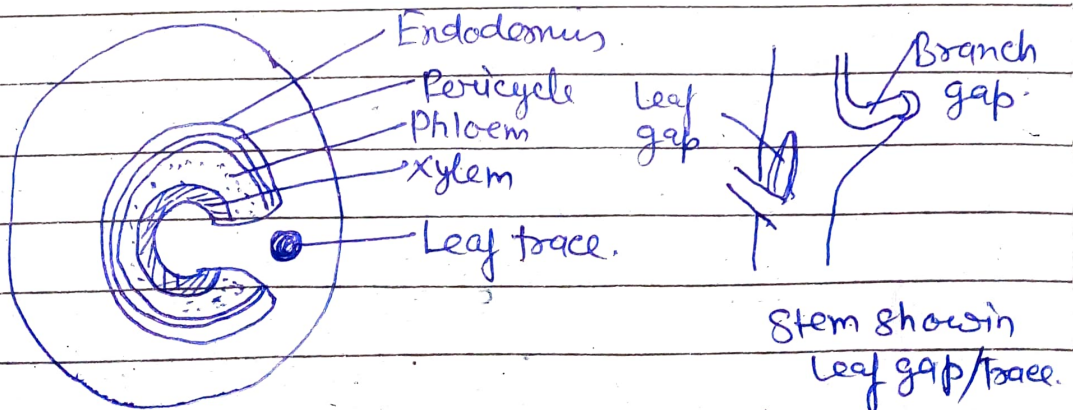 Endodermis.
Pericycle
Phloem
Xylem
Leaf trace.
Leaf
gap
Branch
gap.
Stem showin
Leaf gap/trace.